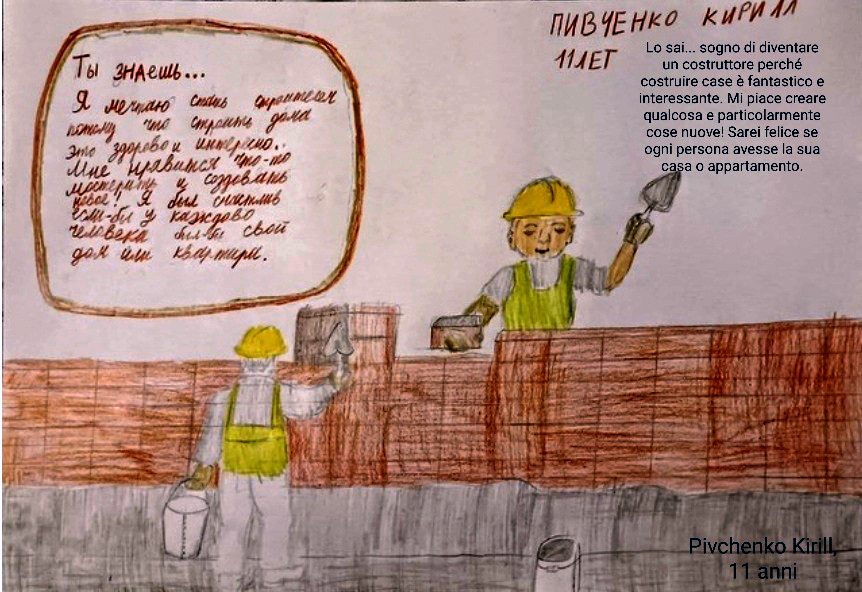 ПИВЧЕНКО КИРИЛЛ
11 ЛЕТ
Lo sai... sogno di diventare
un costruttore perché
costruire case è fantastico e
interessante. Mi piace creare
qualcosa e particolarmente
cose nuove! Sarei felice se
ogni persona avesse la sua
casa o appartamento.
Ты знаешь...
Я мечтаю стать строителем
потому что строить дома
это здорово и интересно..
Мне нравится что-то
мостерить и создовать
новое! Я был счастлив
если-бы у каждово
человека был-бы свой
дом или квартира.
Pivchenko Kirill,
11 anni